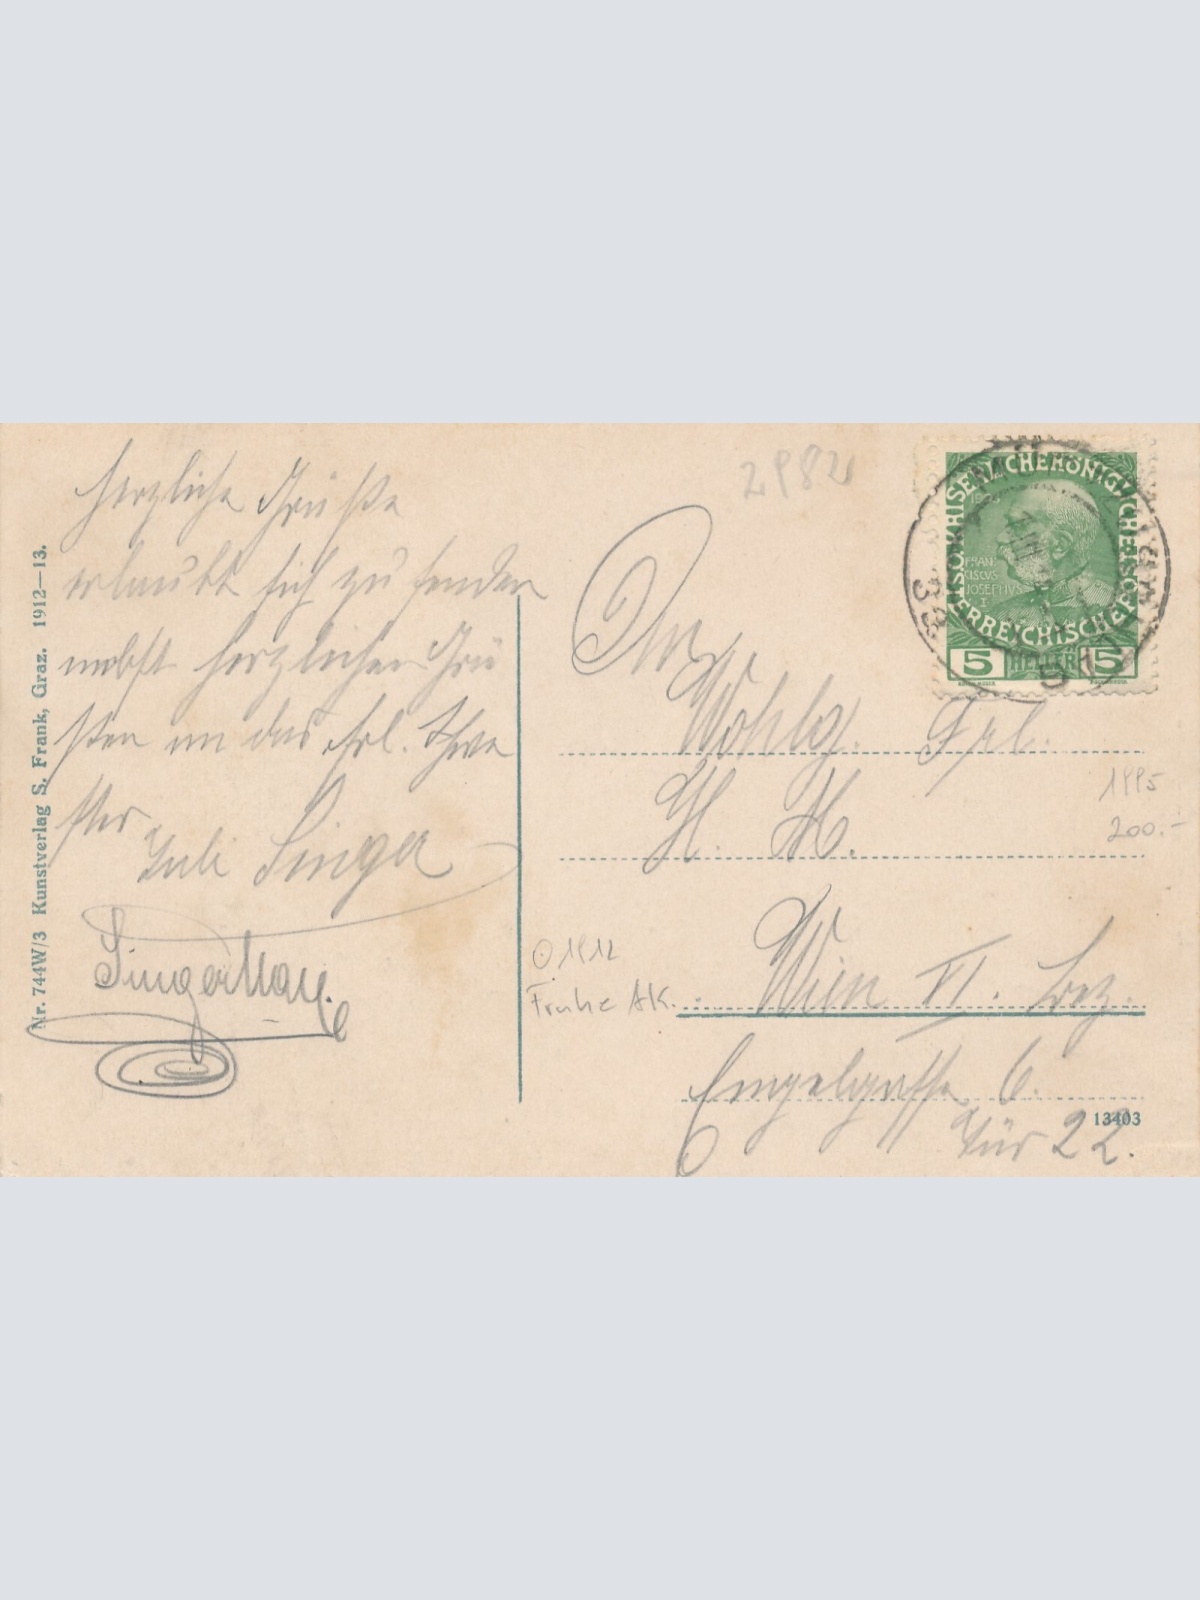 Herzliche Grüße
erlaubt sich zu senden
nebst herzlichen Grü
ßen an das Frl. Schwe
ster
Juli Singer
Nr. 744W/3 Kunstverlag S. Frank, Graz. 1912—13.
2982
KAISERLICHE KÖNIGLICHE ÖSTERREICHISCHE POST
FRAN
CISCVS
JOSEPHVS
I
5 HELLER 5
An
Wohlg. Frl.
H. H.
1995
200.-
Wien VI. Bez.
1912
Frühe AK.
Engelgasse 6.
13403
Tür 22.